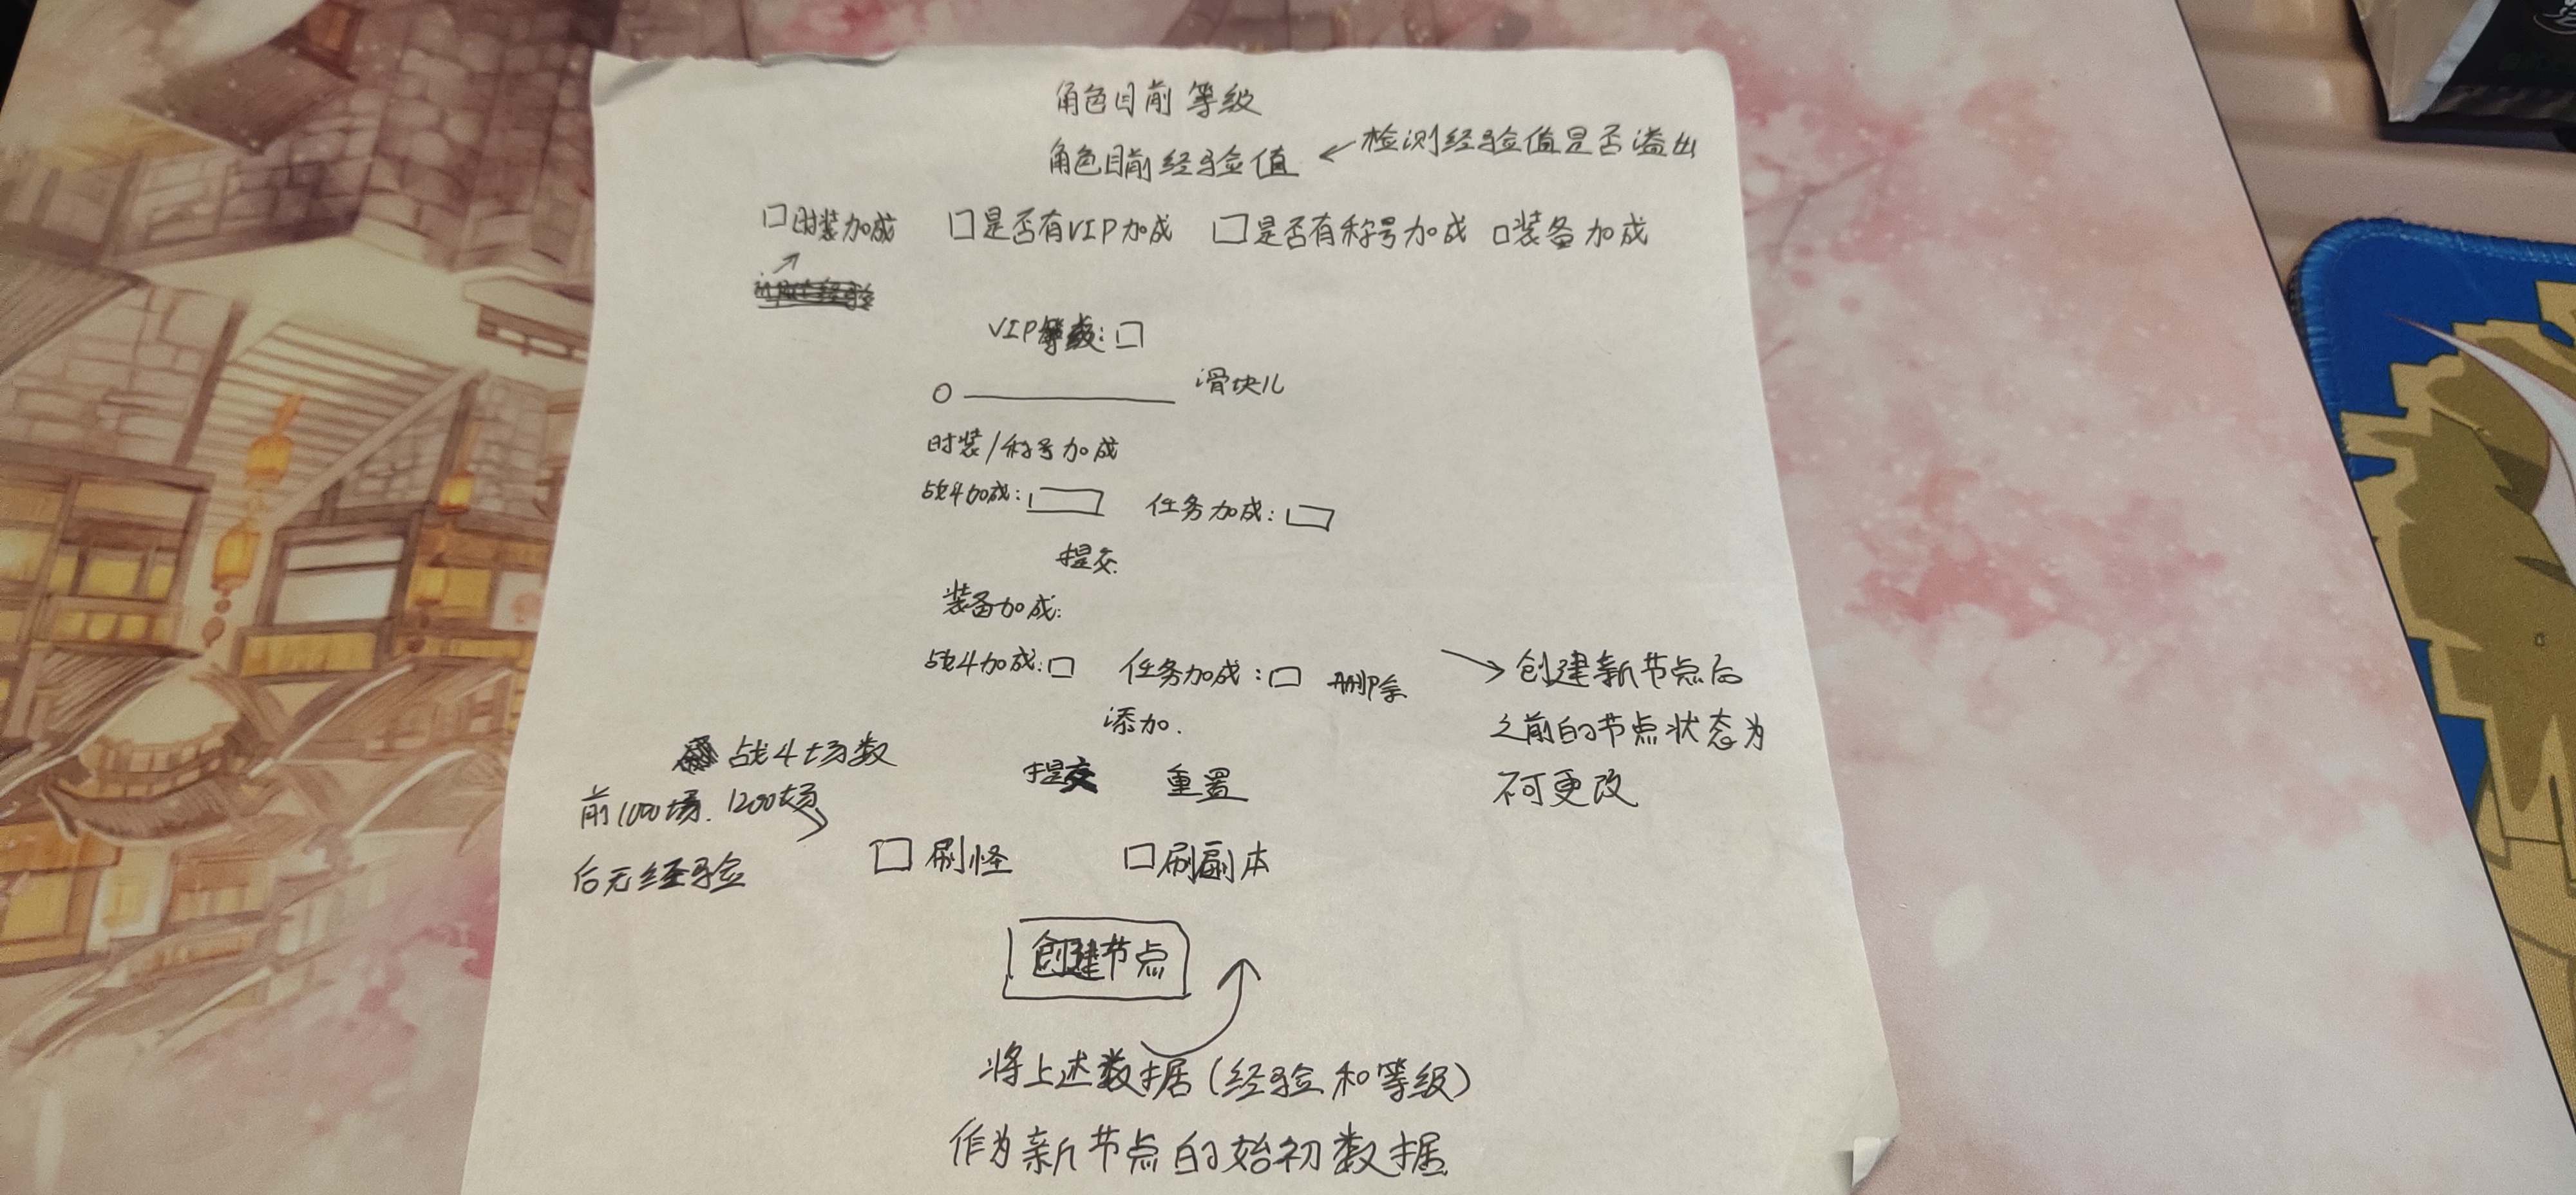 角色目前等级
角色目前经验值 ← 检测经验值是否溢出
□时装加成 □是否有VIP加成 □是否有称号加成 □装备加成
VIP等级：□
滑块儿
时装/称号加成
战斗加成： 任务加成：
提交
装备加成：
战斗加成：□ 任务加成：□ 删除
添加.
→创建新节点后
之前的节点状态为
不可更改
提交 重置
战斗场数
前1000场. 1200场
后无经验
□刷怪 □刷副本
创建节点
将上述数据(经验和等级)
作为新节点的始初数据